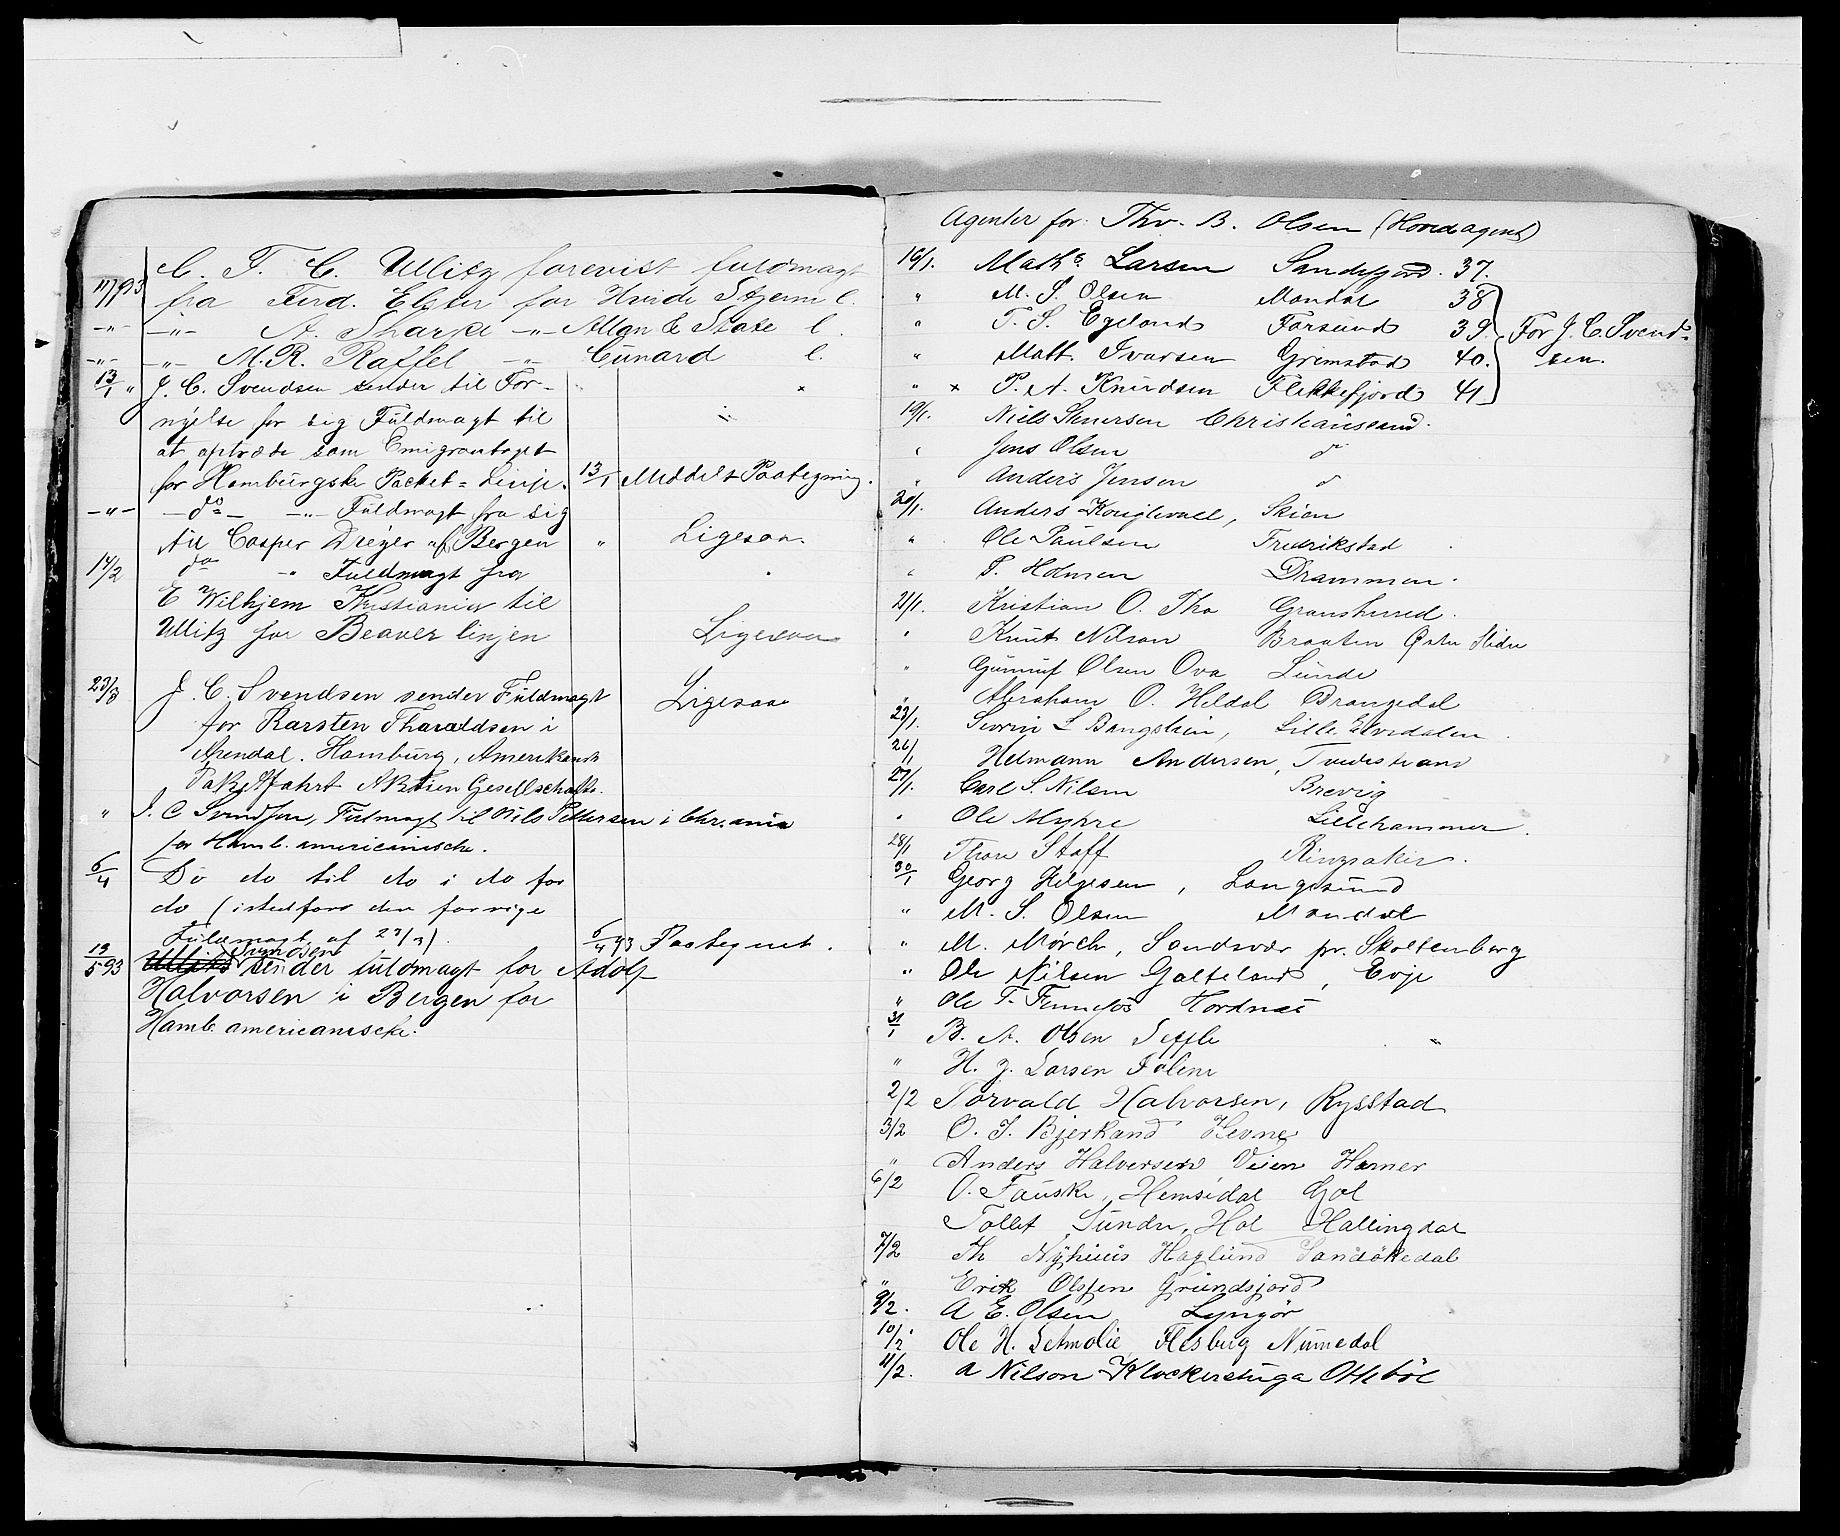 C. T. C. Ullitz forevist fuldmagt
11/1 93 fra Ferd. Elster for Hvide Stjerne l.
-"- -"- A. Sharpe -"- Allan & State l.
-"- -"- M. R. Raffel -"- Cunard l.
13/1 " J. C. Svendsen sender til For-
nyelse for sig Fuldmagt til
at optræde som Emigrantagt
for Hamburgske Packet=Linje. 13/1 Meddelt Paategning.
-"- -do- -"- Fuldmagt fra sig
til Casper Dreyer af Bergen " Ligesaa
14/2 do -"- Fuldmagt fra
E Wilhjem Kristiania til
Ullitz for Beaver linjen Ligesaa
23/3 J. C. Svendsen sender Fuldmagt Ligesaa
for Karsten Tharaldsen i
Arendal. Hamburg, Amerikansk
Paketfahrt Aktien Gesellschafts.
" J. C Svendsen, Fulmagt til Nils Pettersen i Chr.ania
for Hamb. americanische.
5/4 Do do til do i do for
do (istedfor den forrige
Fuldmagt af 23/3). 5/4 93 Paategnet.
13/5 93 Ullitz Svendsen sender fuldmagt for Adolf
Halvorsen i Bergen for
Hamb. americanische.
Agenter for Thv. B. Olsen (Hovedagent)
16/1. Maths. Larsen Sandefjord. 37.
" M. S. Olsen Mandal 38
" T. S. Egeland Farsund 39. For J. C. Svend-
" Math. Ivarsen Grimstad 40. sen.
" x P. A. Knudsen Flekkefjord 41
19/1. Niels Stenersen Christiansand.
" Jens Olsen do
" Anders Jensen do
20/1. Anders Konglevall, Skien
" Ole Paulsen Fredrikstad
" T. Holmsen Drammen.
21/1. Kristian O. Tho Gransherred.
" Knut Nilsen Braaten Østre Slidre
" Gunnuf Olsen Ova Lunde
" Abraham O. Heldal Drangedal
23/1. Severin L Bangstein, Lille Elvedalen.
26/1 Helmann Andersen, Tvedestrand
27/1. Carl S. Nilsen Brevig
" Ole Myhre Lillehammer.
28/1 Thore Staff Ringsaker.
30/1 Georg Helgesen, Langesund
" M. S. Olsen Mandal
" M. Mørch, Sandsvær pr. Skollenborg
" Ole Nilsen Galteland, Evje
" Ole T. Hordnes
31/1 B. A. Olsen Seffle "
" H. J. Larsen
2/2 Torvald Halvorsen, Rysstad
3/2 O. J. Bjerkand Hevne
" Anders Halversen Veien Hamer
6/2 O. Fauske, Hemsedal Gol
Tollef Sundre, Hol Hallingdal
7/2 Th Nyhuus Haglund Sandökedal
" Erik Olssen Grundsjord
9/2. A E. Olsen Lyngör
10/2 Ole H. Setmolie, Flesberg Numedal
11/2. A Nilson Klockerstuga Ottebøl